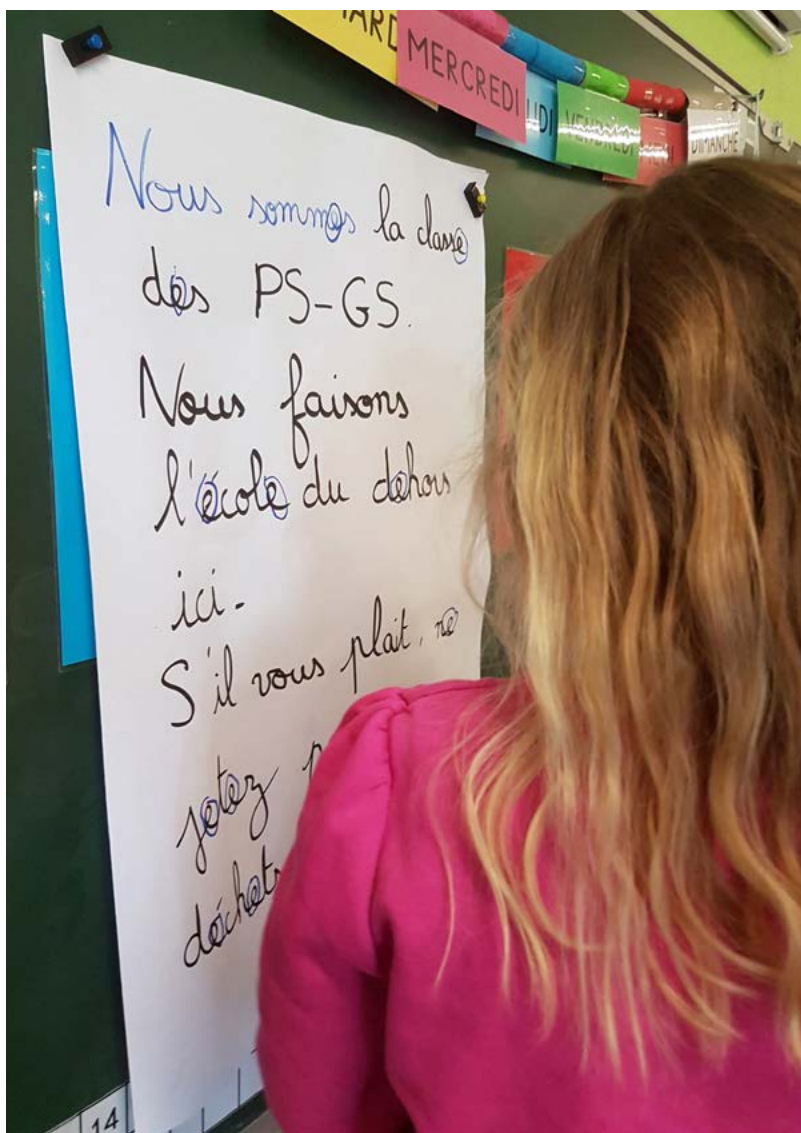 MERCREDI
VENDREDI
DIMANCHE
Nous sommes la classe
des PS-GS.
Nous faisons
l'école du dehors
ici.
S'il vous plait, ne
jetez
déchets
14